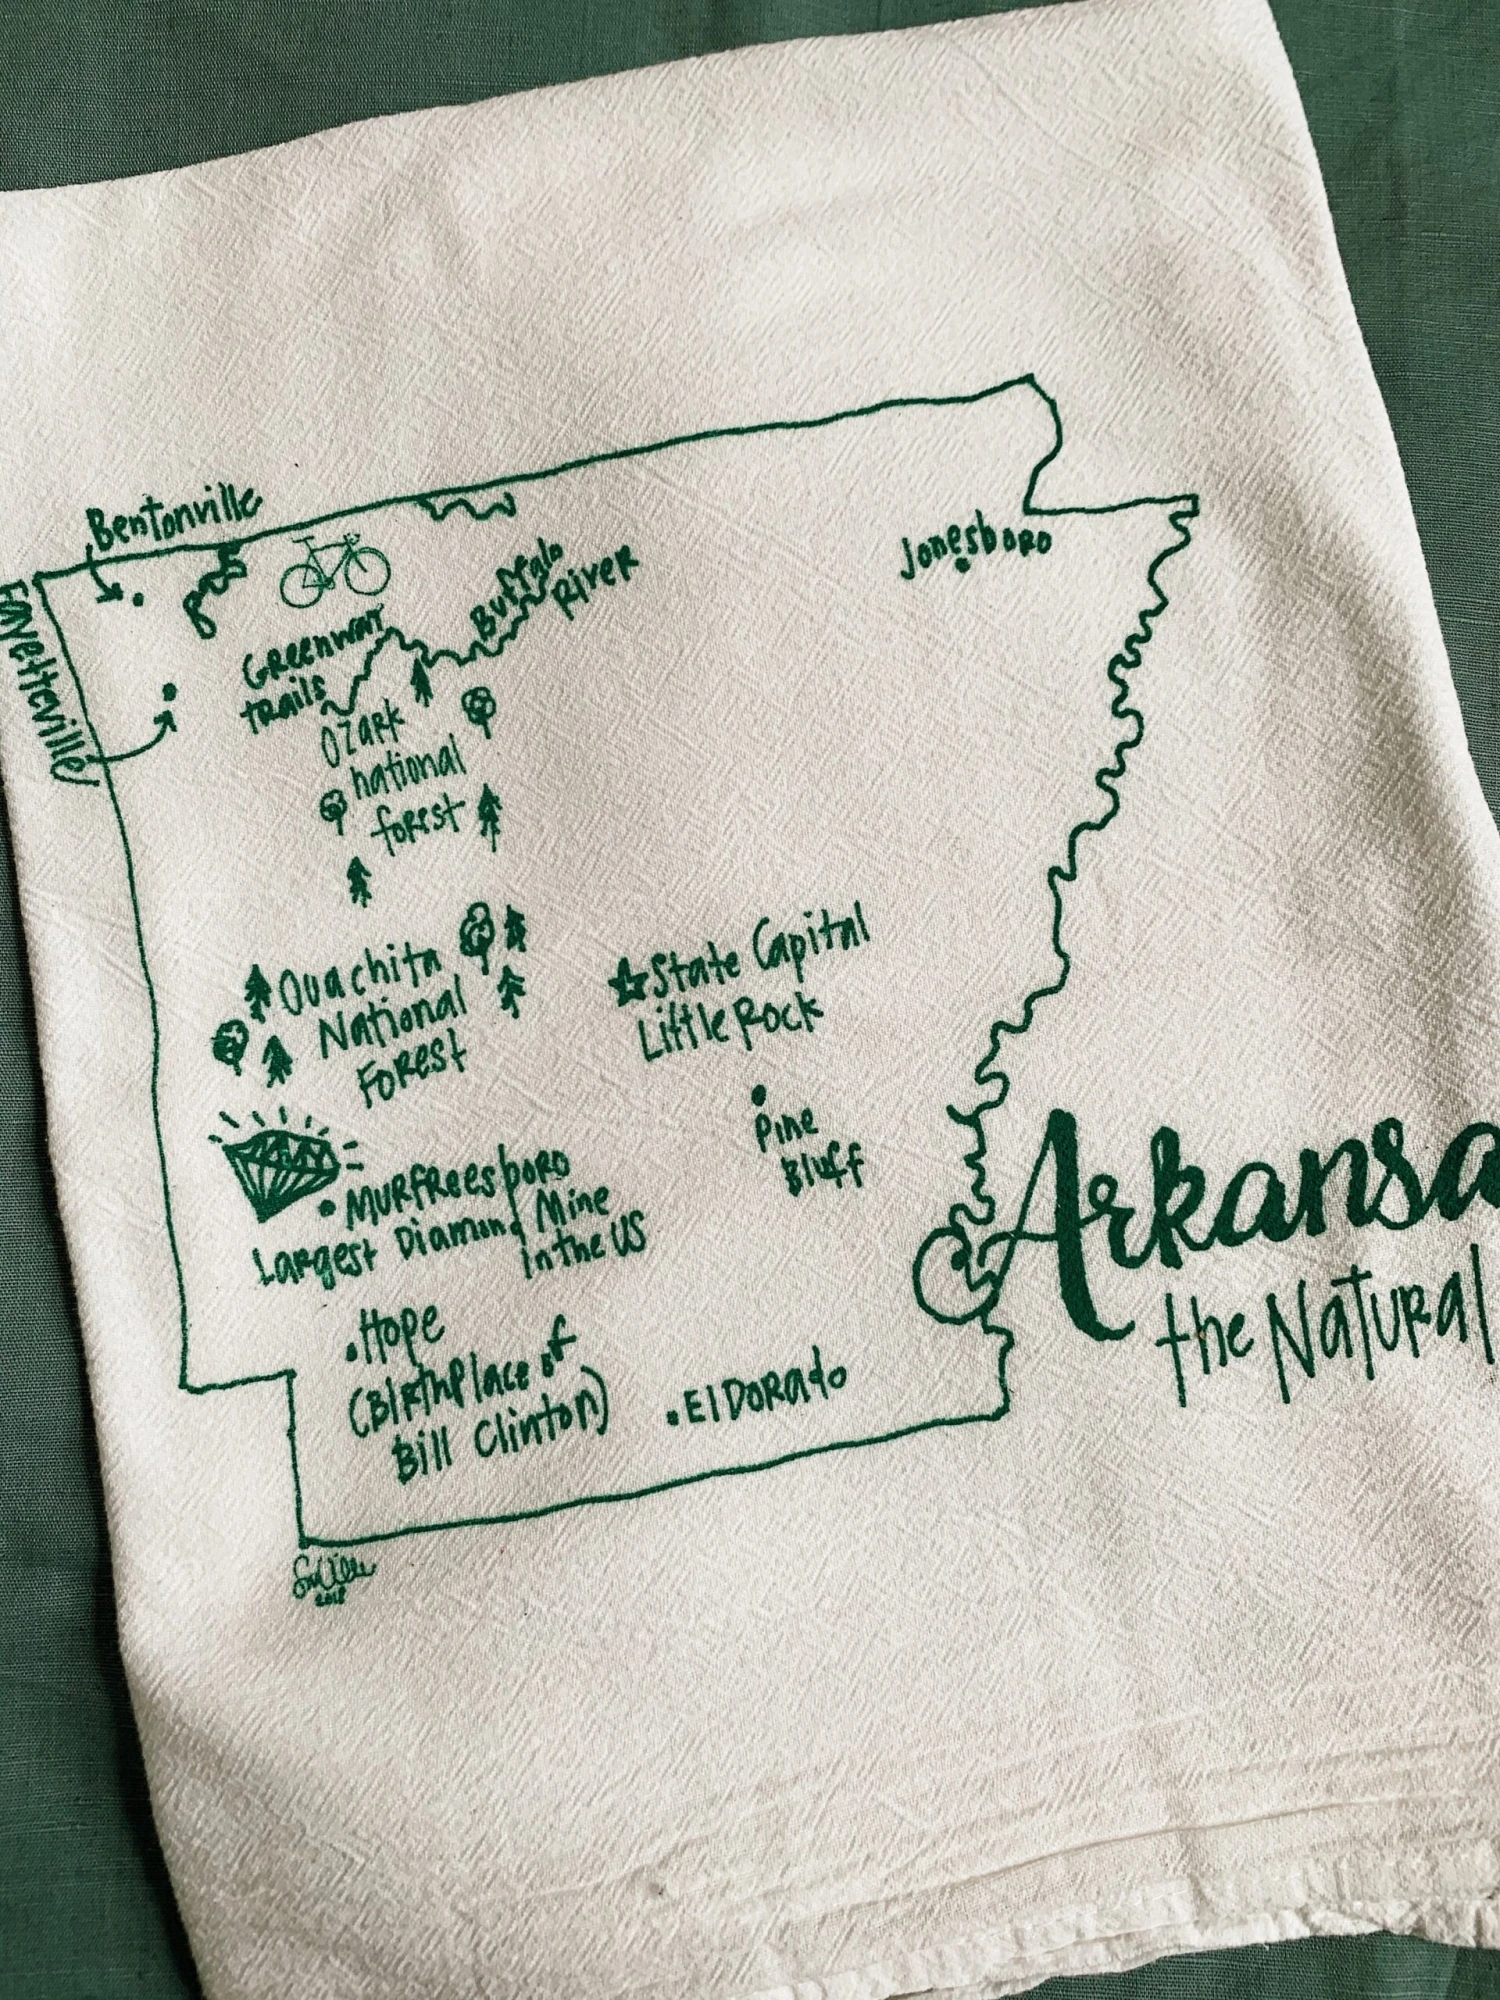 Bentonville
Fayetteville
Greenway
trails
Buffalo
River
Jonesboro
Ozark
national
forest
Ouachita
National
Forest
State Capital
Little Rock
Pine
Bluff
Murfreesboro
Largest Diamond Mine
in the US
Hope
(Birthplace of
Bill Clinton)
El Dorado
Arkansa
the Natural
2018